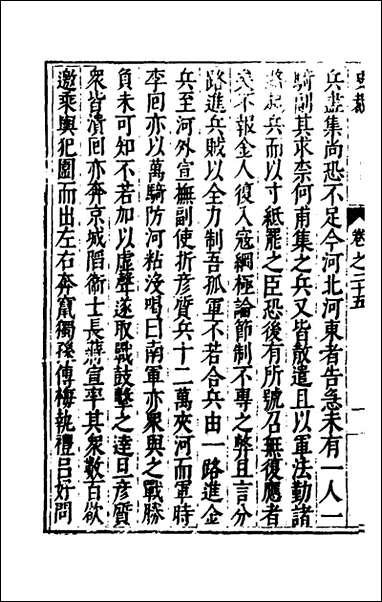 史裁 卷之二十五
兵盡集尚恐不足今河北河東者告急未有一人一
騎副其求柰何甫集之兵又皆散遣且以軍法勤諸
路起兵而以寸紙罷之臣恐後有所號召無復應者
矣不報金人復入寇綱極論節制不專之弊且言分
路進兵賊以全力制吾孤軍不若合兵由一路進金
兵至河外宣撫副使折彥質兵十二萬夾河而軍時
李回亦以萬騎防河粘沒喝曰南軍亦眾與之戰勝
負未可知不若加以虛聲遂取戰鼓擊之達旦彥質
眾皆潰回亦奔京城陷衛士長蔣宣率其眾數百欲
邀乘輿犯圍而出左右奔竄獨孫傅梅執禮呂好問